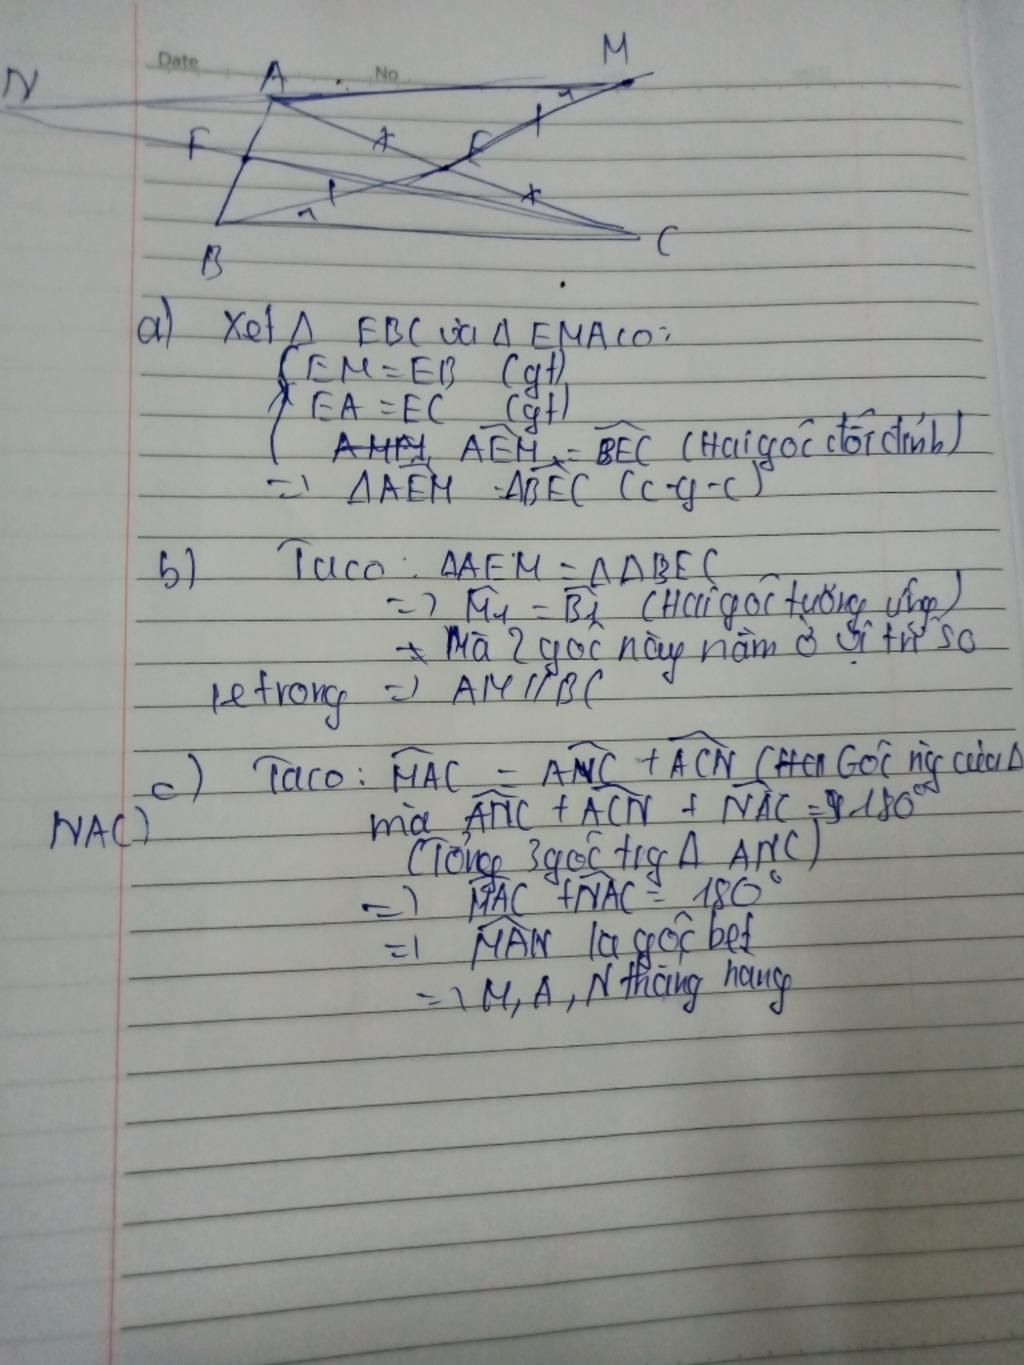 Date
No
N
A
M
F
E
B
C
a) Xet Δ EBC và Δ EMA co:
EM = EB (gt)
EA = EC (gt)
AEM = BEC (Hai góc đối đỉnh)
=> ΔAEM = ΔBEC (c-g-c)
b) Ta co: ΔAEM = ΔΔBEC
=> M1 = B1 (Hai góc tương ứng)
+ Mà 2 góc này nằm ở vị trí so
le trong => AM // BC
c) Ta co: MAC = ANC + ACN (Góc ng của Δ
NAC)
mà ANC + ACN + NAC = 180°
(Tổng 3 góc trg Δ ANC)
=> MAC + NAC = 180°
=> MAN la góc bet
=> M, A, N thẳng hang